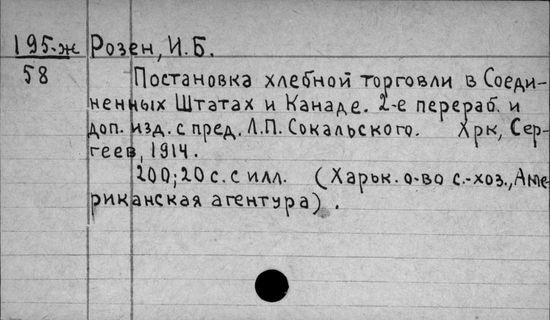 195-ж Розен, И.Б.
58 Постановка хлебной торговли в Соеди-
ненных Штатах и Канаде. 2-е перераб. и
доп. изд. с пред. Л.П. Сокальского. Хрк, Сер-
геев, 1914.
200; 20 с. с илл. (Харьк. о-во с.-хоз., Аме-
риканская агентура).